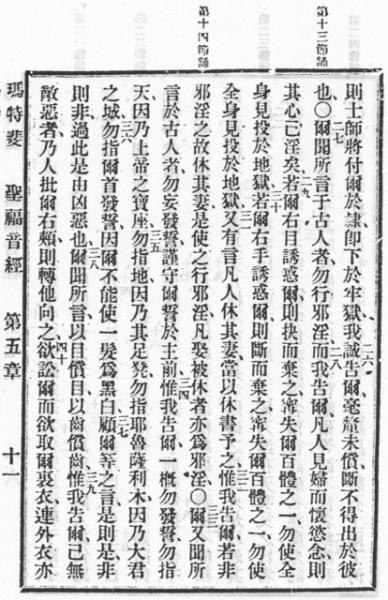 第十三節誦
第十四節誦
則士師將付爾於隸即下於牢獄我誠告爾毫釐未償斷不得出於彼
也○爾聞所言于古人者勿行邪淫而我告爾凡人見婦而懷慾念則
其心已淫矣若爾右目誘惑爾則抉而棄之寗失爾百體之一勿使全
身見投於地獄若爾右手誘惑爾則斷而棄之寗失爾百體之一勿使
全身見投於地獄又有言凡人休其妻當以休書予之惟我告爾若非
邪淫之故休其妻是使之行邪淫凡娶被休者亦爲邪淫○爾又聞所
言於古人者勿妄發誓謹守爾誓於主前惟我告爾一槪勿發誓勿指
天因乃上帝之寶座勿指地因乃其足凳勿指耶魯薩利木因乃大君
之城勿指爾首發誓因爾不能使一髮爲黑白顧爾等之言是則是非
則非過此是由凶惡也爾聞所言以目償目以齒償齒惟我告爾已無
敵惡者乃人批爾右頰則轉他向之欲訟爾而欲取爾裏衣連外衣亦
瑪特斐 聖福音經 第五章 十一
二六
二七
二八
二九
三十
三一
三二
三三
三四
三五
三六
三七
三八
三九
四十